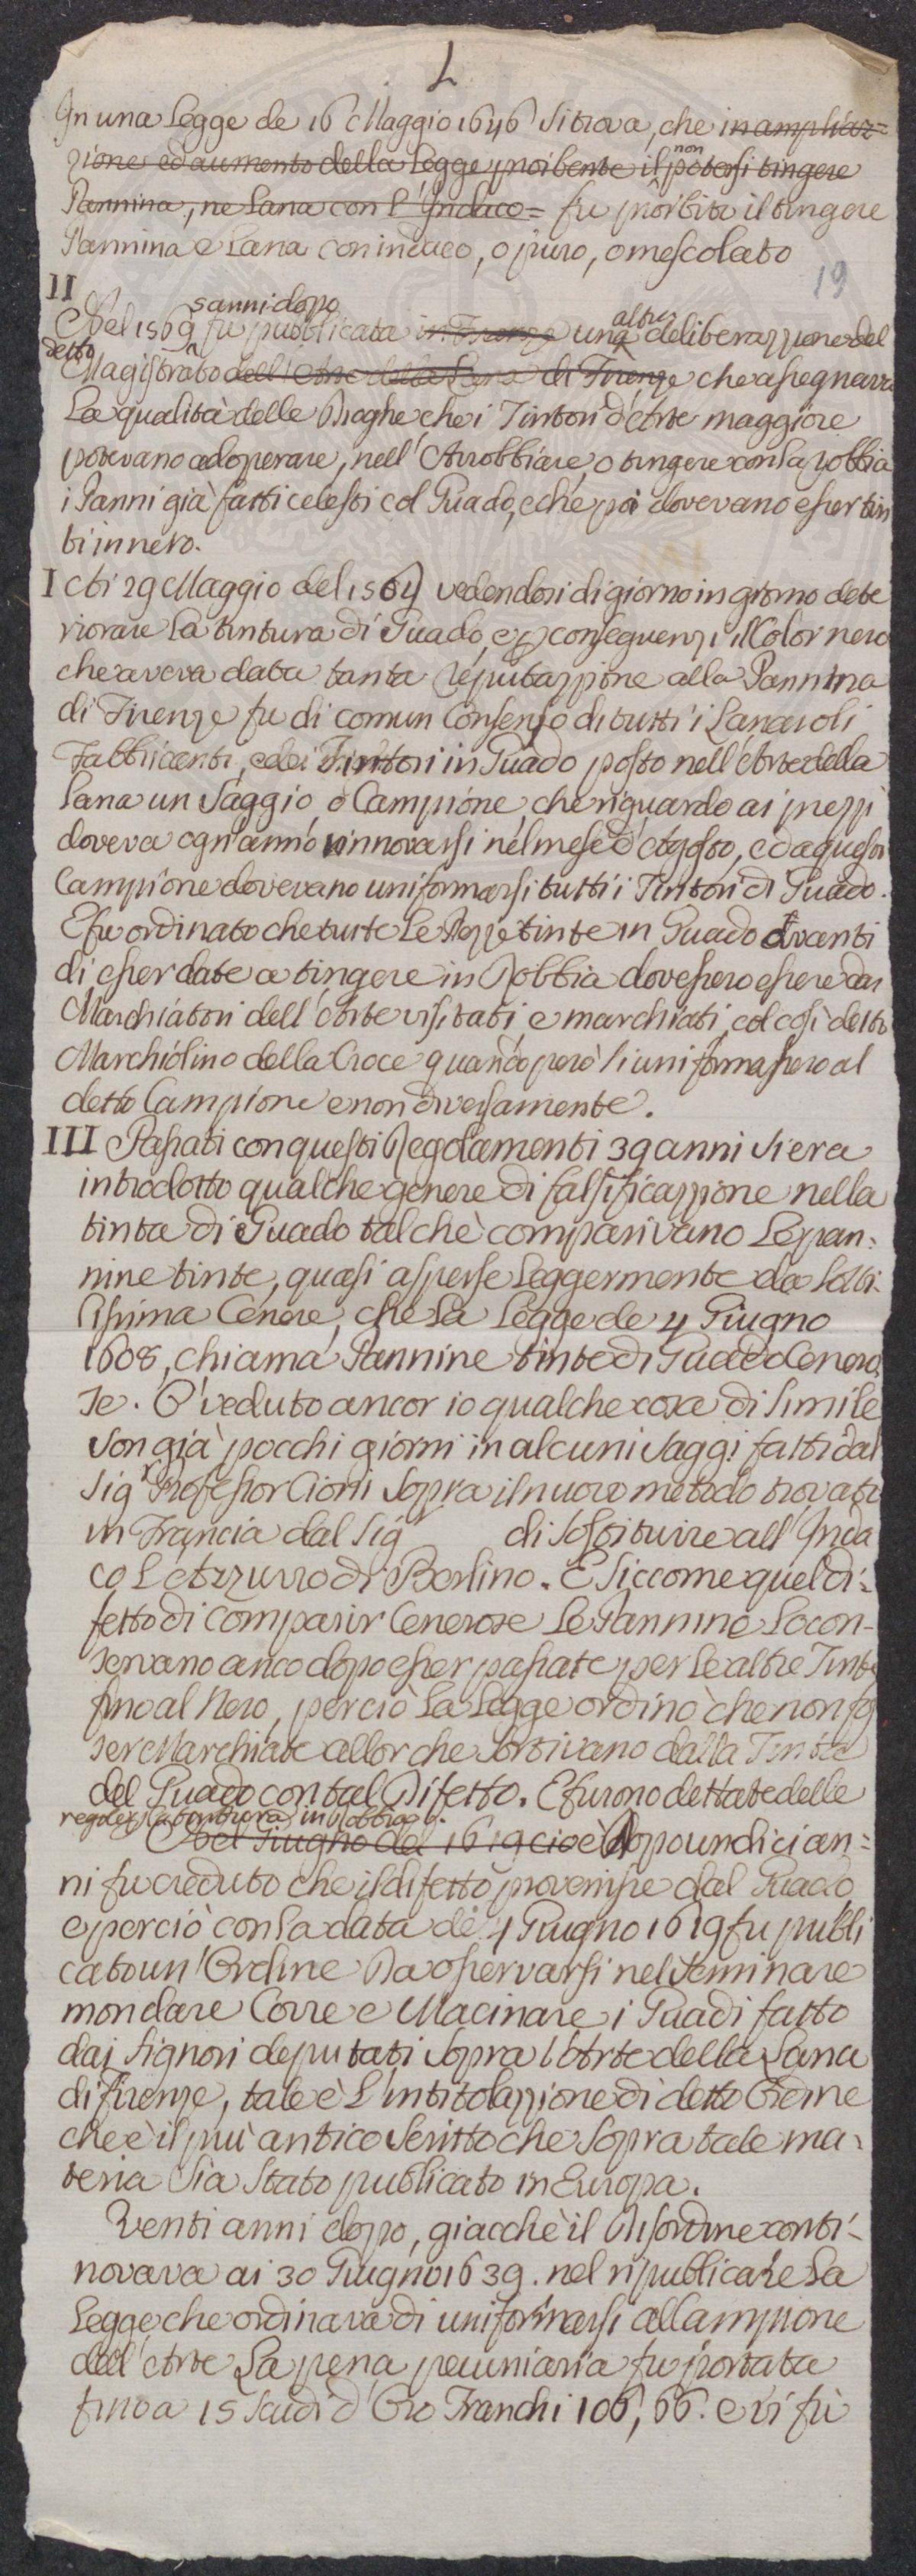 L
In una Legge de 16 Maggio 1646 si trova, che in ampliaz=
zione ed aumento della Legge proibente il non potersi tingere
Pannina, ne Lana con l'Indaco = fu proibito il tingere
Pannina e Lana con indaco, o puro, o mescolato
19
II
5 anni dopo
Nel 1569 fu pubblicata in Firenze una altra deliberazzione del
detto Magistrato dell'Arte della Lana di Firenze che assegnava
La qualità delle Droghe che i Tintori d'Arte maggiore
potevano adoperare, nell'Arrobbiare, o tingere con la robbia
i Panni già fatti celesti col Guado, e che poi dovevano esser tin
ti in nero.
I Ai 29 Maggio del 1564 vedendosi di giorno in giorno dete
riorare la tintura di Guado, e p conseguenza il Color nero
che aveva data tanta reputazzione alla Pannina
di Firenze fu di comun Consenso di tutti i Lanaioli
Fabbricanti, e dei Tintori in Guado posto nell'Arte della
Lana un Saggio, o Campione, che riguardo ai prezzi
doveva ogn'anno rinnovarsi nel mese d'Agosto, ed a questo
Campione dovevano uniformarsi tutti i Tintori di Guado.
E fu ordinato che tutte le Pezze tinte in Guado avanti
di esser date a tingere in Robbia dovessero essere dai
Marchiatori dell'Arte visitati e marchiati, col così detto
Marchiolino della Croce quando però si uniformassero al
detto Campione e non diversamente.
III Passati con questi Regolamenti 39 anni si era
introdotto qualche genere di falsificazzione nella
tinta di Guado talchè comparivano le pan=
nine tinte, quasi asperse leggermente da sotti=
lissima Cenere, che la Legge de 4 Giugno
1608, chiama Pannine tinte di Guado Cenero
se. O' veduto ancor io qualche cosa di simile
son già pocchi giorni in alcuni saggi fatti dal
Sigr Professor Cioni sopra il nuovo metodo trovato
in Francia dal Sigr di sostituire all'Inda
co l'Azzurro di Berlino. E siccome quel di=
fetto di comparir Cenerose le Pannine lo con-
servano anco dopo esser passate per le altre Tinte
fino al Nero, perciò la Legge ordinò che non fos
ser Marchiate allor che sortivano dalla Tinta
del Guado con tal Difetto. E furono dettate delle
regole p la tintura in Robbia.
Nel Giugno del 1619 cioè Dopo undici an=
ni fu creduto che il difetto provenisse dal Guado
e perciò con la data de 4 Giugno 1619 fu publi
cato un'Ordine Da osservarsi nel seminare
mondare Corre e Macinare i Guadi fatto
dai Signori deputati sopra l'Arte della Lana
di firenze, tale è l'intitolazzione di detto Ordine
che è il più antico scritto che sopra tale ma=
teria sia stato publicato in Europa.
Venti anni dopo, giacchè il Disordine conti=
novava ai 30 Giugno 1639. nel ripubblicare la
Legge che ordinava di uniformarsi al Campione
dell'Arte la pena pecuniaria fu portata
fino a 15 scudi d'Oro Franchi 106, 66. e vi fù